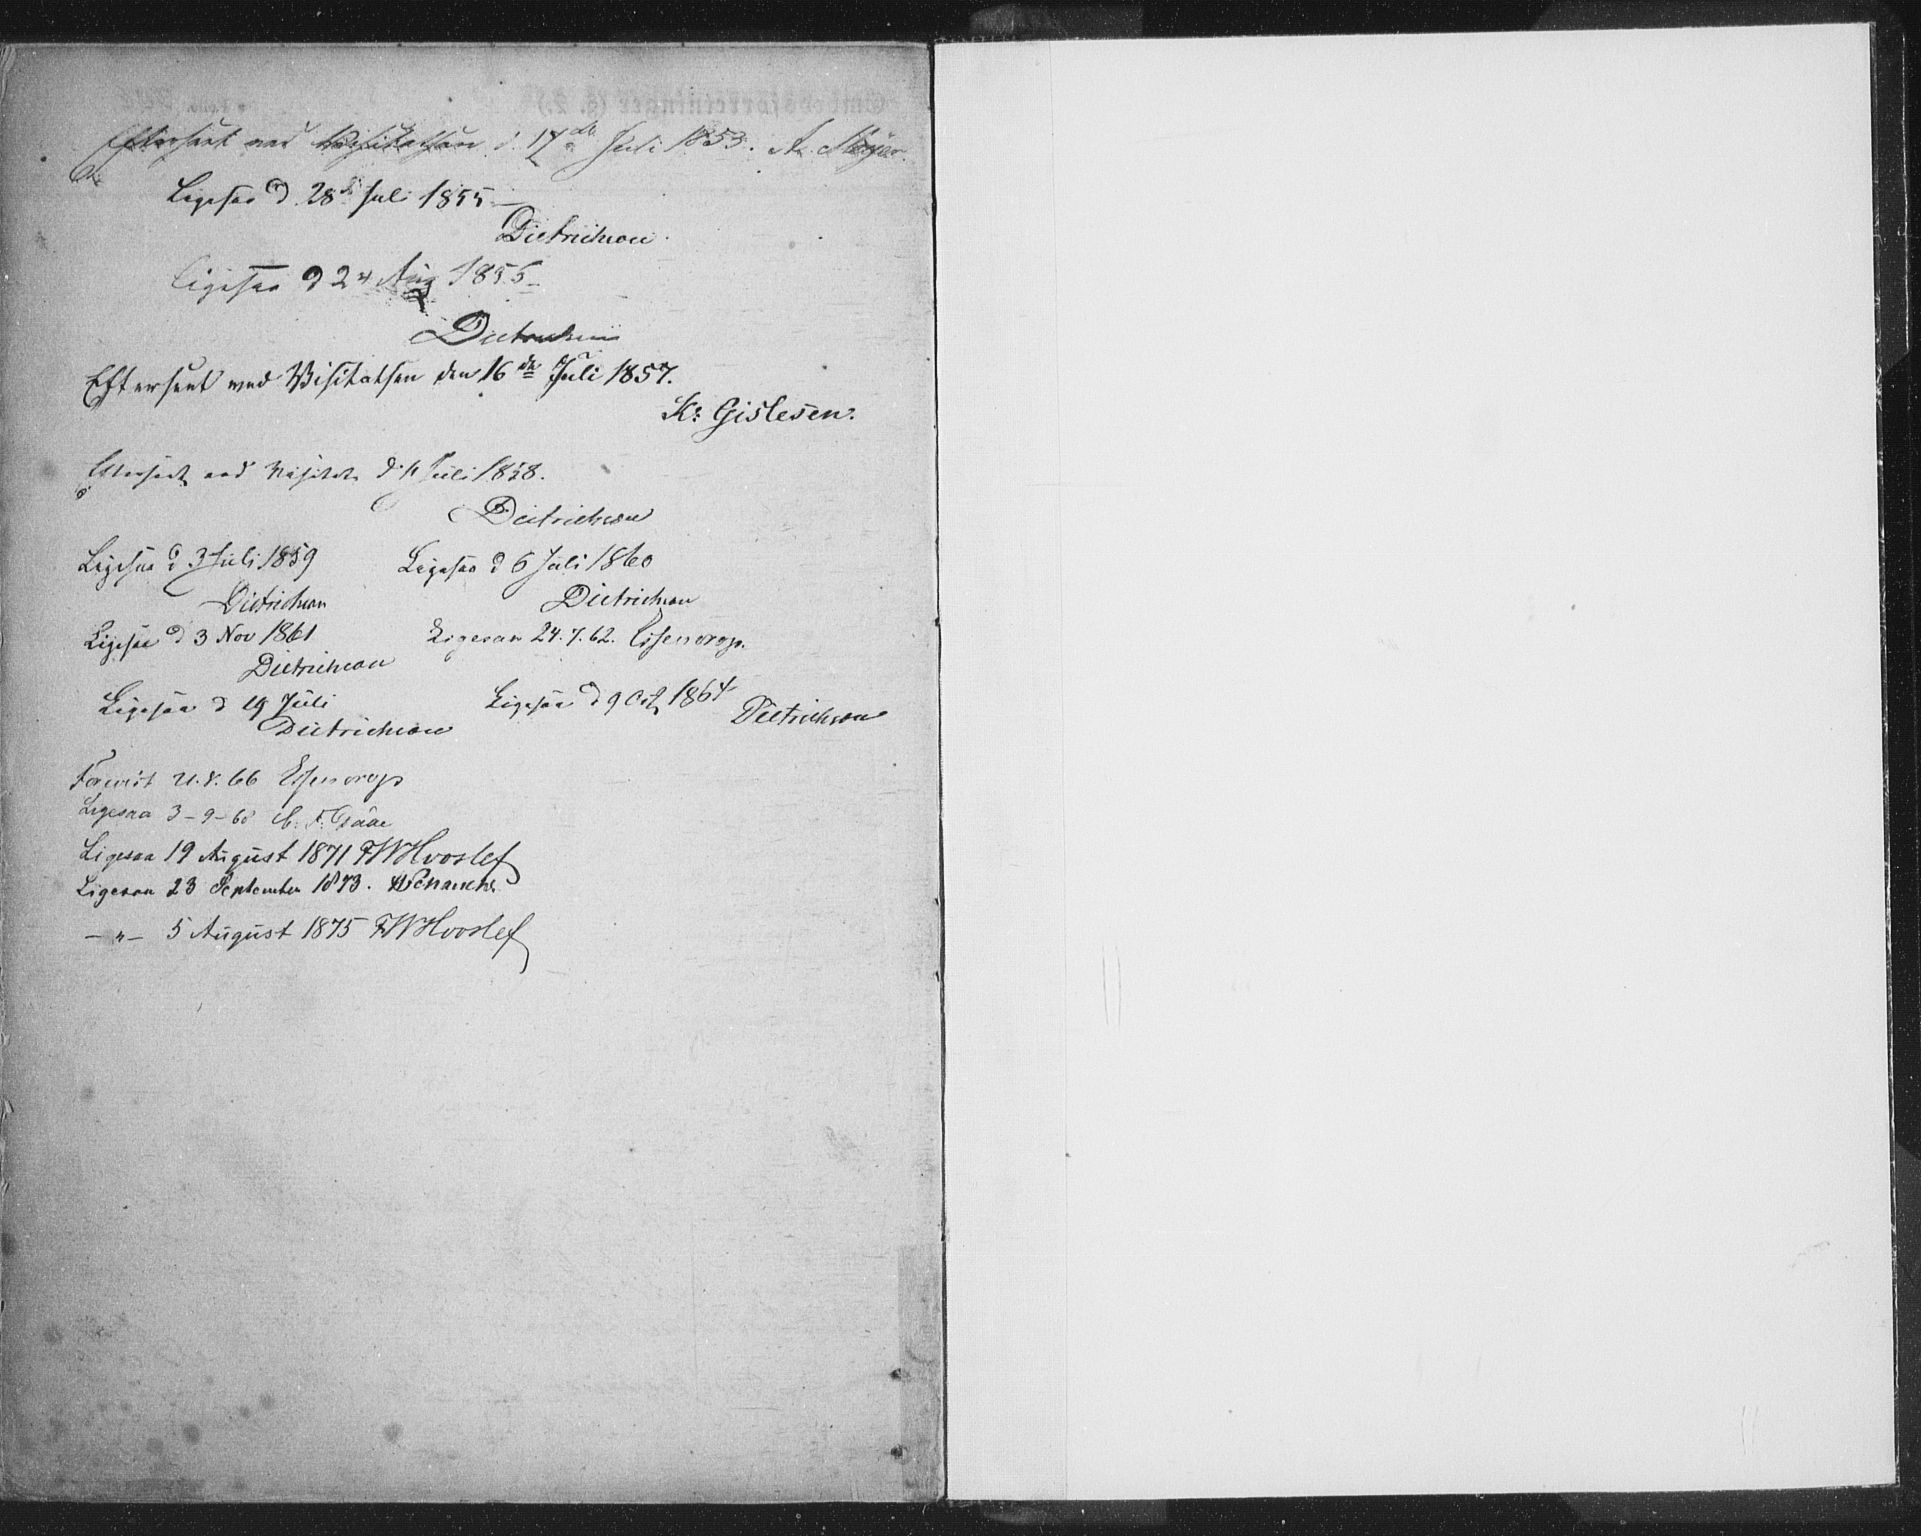 Efterseet ved Visitatsen d. 17de Juli 1853. A.
Ligesaa d. 28 Juli 1855
Dietrichson
Ligesaa d 24 Aug 1855
Dietrichson
Efterseet ved Visitatsen den 16de Juli 1857.
Kr Gislesen.
Efterseet ved Visitats d. Juli 1858.
Dietrichson
Ligesaa d 3 Juli 1859
Dietrichson
Ligesaa d 6 Juli 1860
Dietrichson
Ligesaa d 3 Nov 1861
Dietrichson
Ligesaa 24.7.62. Essendrop.
Ligesaa d 19 Juli
Dietrichson
Ligesaa d 9 Oct 1864
Dietrichson
Forevist 21.8.66 Essendrop
Ligesaa 3-9-68
Ligesaa 19 August 1871 FWHvoslef
Ligesaa 23 September 1873.
-"- 5 August 1875 FWHvoslef